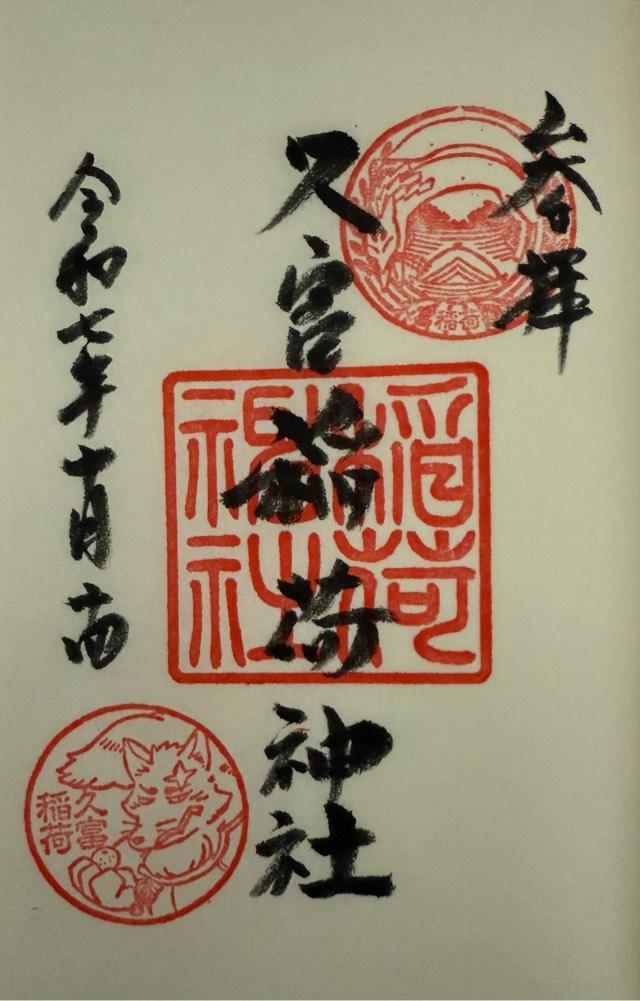 参拝
久富稲荷神社
令和七年十月
稲荷
神社
稲荷
久富
稲荷